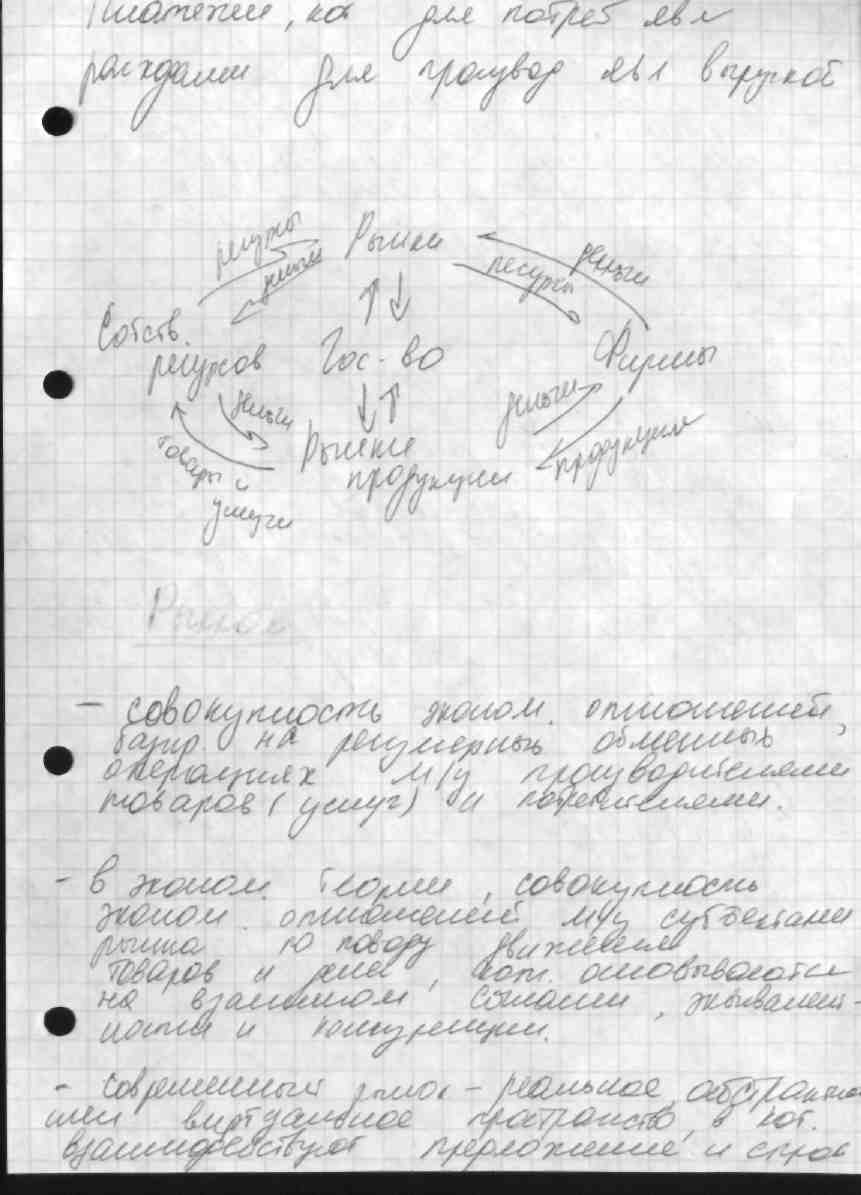 платежи, кот для потреб явл
расходами для производ явл выручкой
ресурсы
деньги
Рынки
ресурсы
деньги
Собств.
ресурсов
Гос-во
Фирмы
деньги
товары и
услуги
Рынки
продукции
деньги
продукция
Рынок
- совокупность эконом. отношений,
базир. на регулярных обменных
операциях м/у производителями
товаров (услуг) и потребителями.
- в эконом. теории, совокупность
эконом. отношений м/у субъектами
рынка по поводу движения
товаров и ден, кот. основываются
на взаимном согласии, эквивалент-
ности и конкуренции.
- современный рынок - реальное, абстрактное
или виртуальное пространство, в кот.
взаимодействуют предложение и спрос